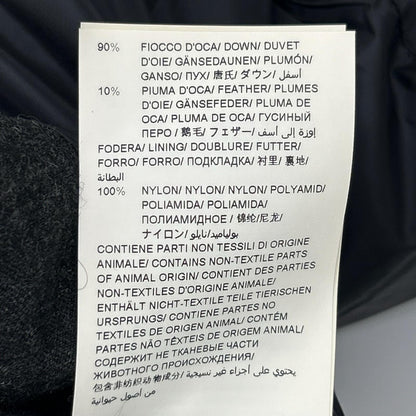 90% FIOCCO D'OCA/ DOWN/ DUVET
D'OIE/ GÄNSEDAUNEN/ PLUMÓN/
GANSO/ ПУХ/ 唐氏/ ダウン/ أسفل
10% PIUMA D'OCA/ FEATHER/ PLUMES
D'OIE/ GÄNSEFEDER/ PLUMA DE
OCA/ PLUMA DE OCA/ ГУСИНЫЙ
ПЕРО / 鹅毛/ フェザー/ إوزة إلى أسف
FODERA/ LINING/ DOUBLURE/ FUTTER/
FORRO/ FORRO/ ПОДКЛАДКА/ 衬里/ 裏地/
البطانة
100% NYLON/ NYLON/ NYLON/ POLYAMID/
POLIAMIDA/ POLIAMIDA/
ПОЛИАМИДНОЕ / 锦纶/尼龙/
ナイロン/ بولياميد/نايلو
CONTIENE PARTI NON TESSILI DI ORIGINE
ANIMALE/ CONTAINS NON-TEXTILE PARTS
OF ANIMAL ORIGIN/ CONTIENT DES PARTIES
NON-TEXTILES D'ORIGINE ANIMALE/
ENTHÄLT NICHT-TEXTILE TEILE TIERISCHEN
URSPRUNGS/ CONTIENE PARTES NO
TEXTILES DE ORIGEN ANIMAL/ CONTÉM
PARTES NÃO TÊXTEIS DE ORIGEM ANIMAL/
СОДЕРЖИТ НЕ ТКАНЕВЫЕ ЧАСТИ
ЖИВОТНОГО ПРОИСХОЖДЕНИЯ/
包含非纺织动物成分/ يحتوي على أجزاء غير نسيجية
من أصول حيوانية